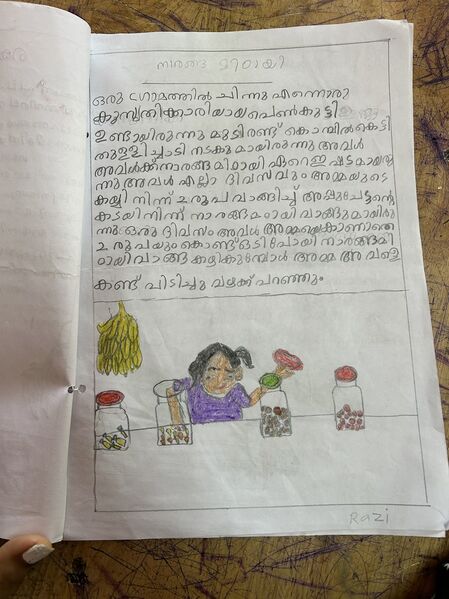 നാരങ്ങ മിഠായി
ഒരു ഗ്രാമത്തിൽ ചിന്നു എന്നൊരു
കുസൃതിക്കാരിയായ പെൺകുട്ടി
ഉണ്ടായിരുന്നു മുടി രണ്ട് കൊമ്പിൽ കെട്ടി
തുള്ളിച്ചാടി നടകുമായിരുന്നു അവൾ
അവൾക്ക് നാരങ്ങമിഠായി ഏറെ ഇഷ്ടമായിരു
ന്നു അവൾ എല്ലാ ദിവസവും അമ്മയുടെ
കയ്യി നിന്ന് 2 രൂപ വാങ്ങിച്ച് അപ്പുചേട്ടന്റെ
കടയി നിന്ന് നാരങ്ങമഠായി വാങ്ങുമായിരു
ന്നു ഒരു ദിവസം അവൾ അമ്മയെക്കാണാതെ
2 രൂപയും കൊണ്ട് ഓടി പോയി നാരങ്ങമി
ഠായി വാങ്ങി കഴികുമ്പോൾ അമ്മ അവളെ
കണ്ട് പിടിച്ചു വഴക്ക് പറഞ്ഞും
Razi